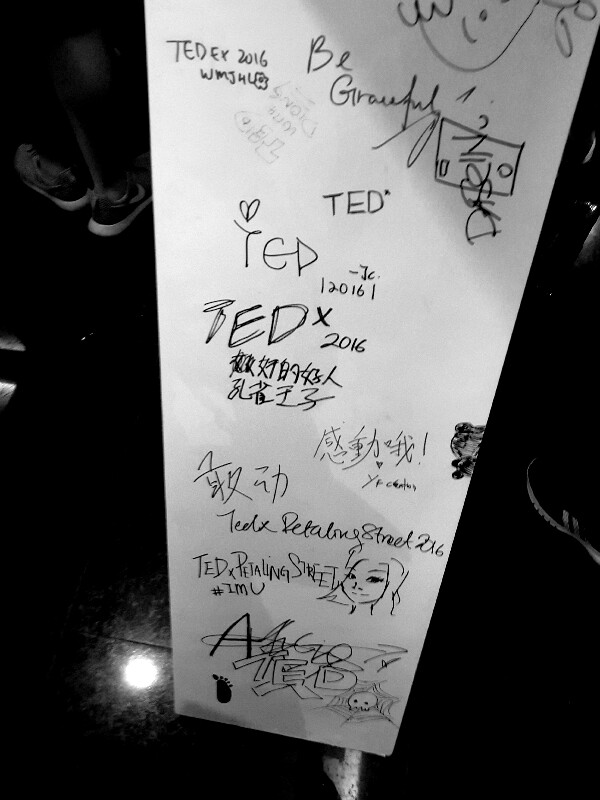 TEDEX 2016
Be
Grateful
TED*
TED
-Jc.
|2016|
TEDX
2016
好的好人
孔雀王子
感動哦!
鼓动
Tedx Petaling Street 2016
TEDX PETALING STREET
#IMU